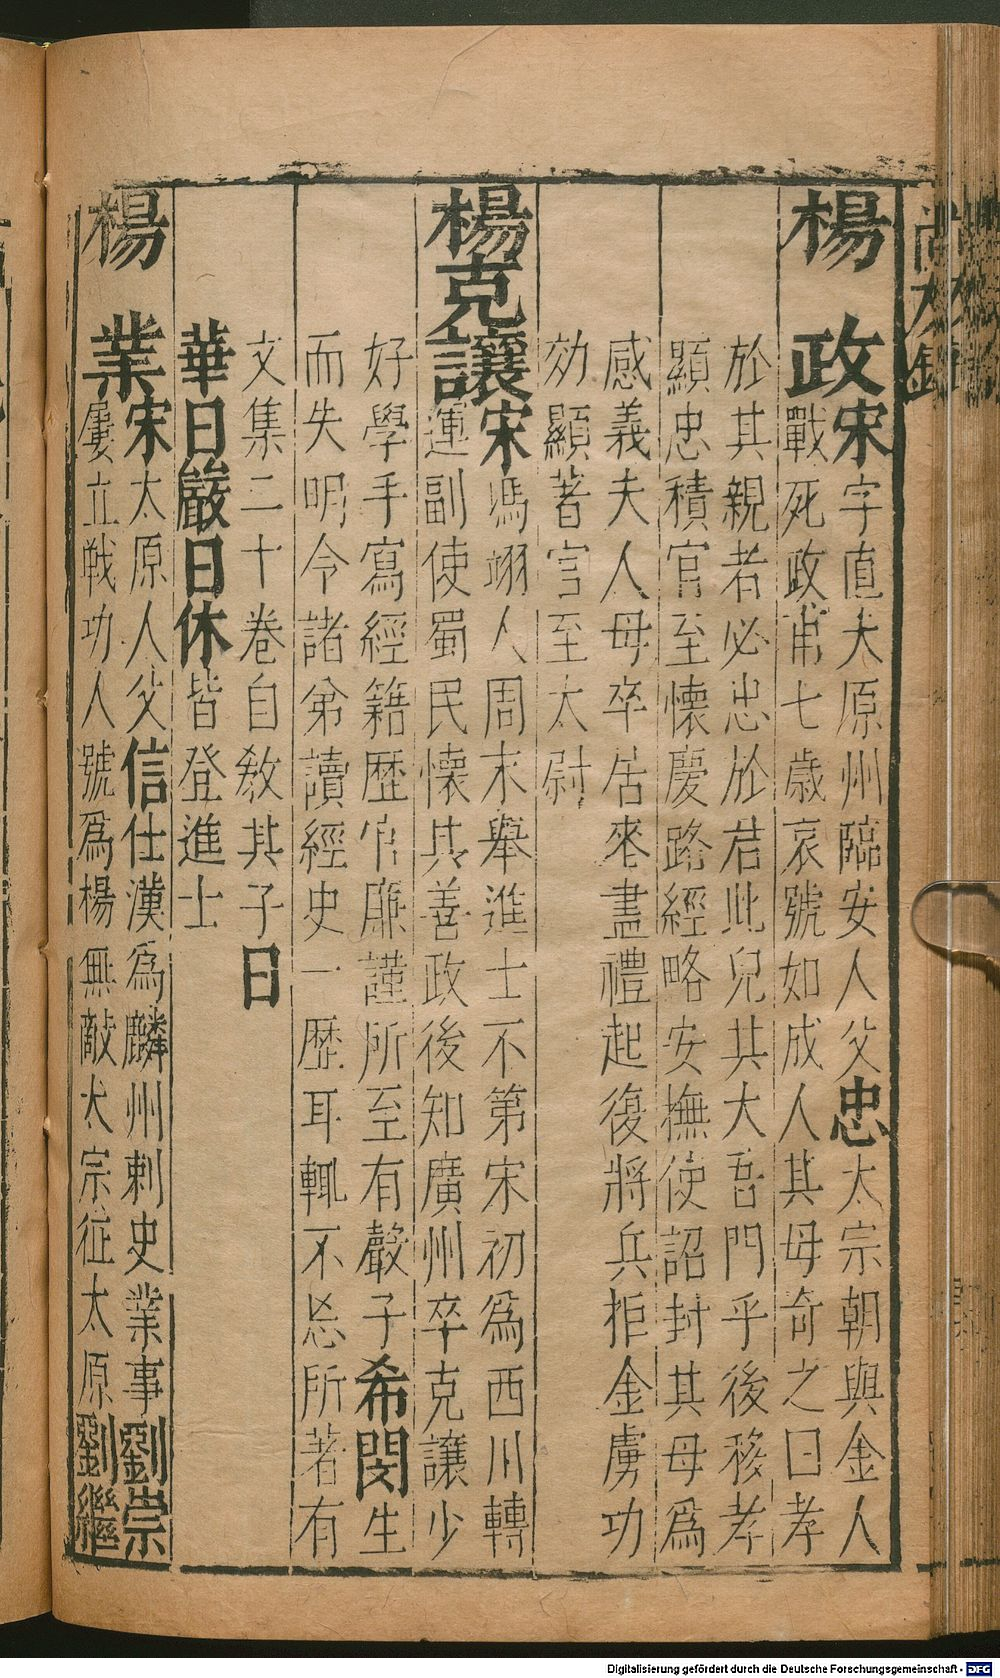 尚友錄
楊政宋字直夫原州臨安人父忠太宗朝與金人
戰死政甫七歲哀號如成人其母奇之曰孝
於其親者必忠於君此兒其大吾門乎後移孝
顯忠積官至懷慶路經略安撫使詔封其母爲
感義夫人母卒居喪盡禮起復將兵拒金虜功
効顯著官至太尉
楊克讓宋馮翊人周末舉進士不第宋初爲西川轉
運副使蜀民懷其善政後知廣州卒克讓少
好學手寫經籍歷官廉謹所至有聲子希閔生
而失明令諸弟讀經史一歷耳輒不忘所著有
文集二十卷自敎其子日
華日嚴日休皆登進士
楊業宋太原人父信仕漢爲麟州刺史業事劉崇
屢立戰功人號爲楊無敵太宗征太原劉繼
Digitalisierung gefördert durch die Deutsche Forschungsgemeinschaft - DFG